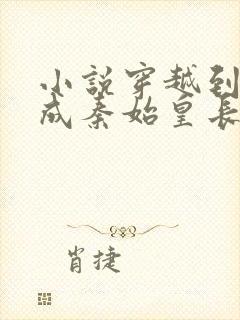 小說穿越到
成秦始皇長
肖捷